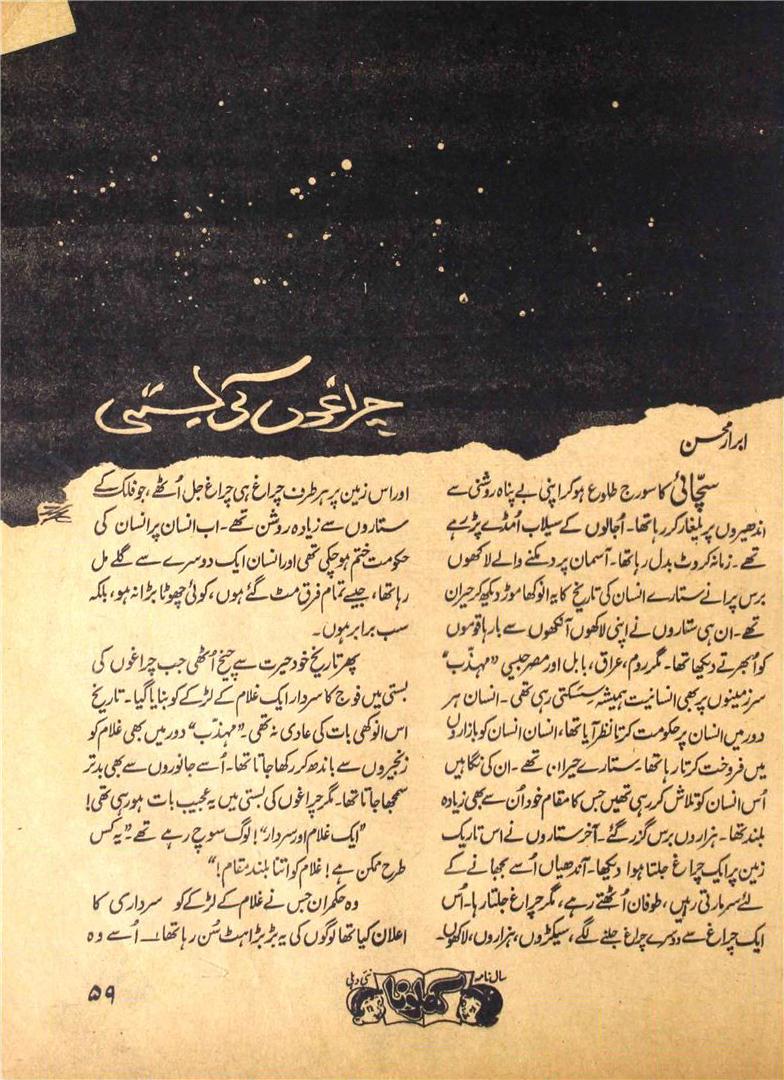 چراغوں کی بستی
ابرار محسن
سچّائی کا سورج طلوع ہوکر اپنی بے پناہ روشنی سے
اندھیروں پر یلغار کر رہا تھا۔ اُجالوں کے سیلاب اُمڈے پڑرہے
تھے۔ زمانہ کروٹ بدل رہا تھا۔ آسمان پر دمکنے والے لاکھوں
برس پرانے ستارے انسان کی تاریخ کا یہ انوکھا موڑ دیکھ کر حیران
تھے۔ ان ہی ستاروں نے اپنی لاکھوں آنکھوں سے بارہا قوموں
کو اُبھرتے دیکھا تھا۔ مگر روم، عراق، بابل اور مصر جیسی ”مہذّب“
سرزمینوں پر بھی انسانیت ہمیشہ سسکتی رہی تھی۔ انسان ہر
دور میں انسان پر حکومت کرتا نظر آیا تھا، انسان انسان کو بازاروں
میں فروخت کرتا رہا تھا۔ ستارے حیران تھے۔ ان کی نگاہیں
اُس انسان کو تلاش کر رہی تھیں جس کا مقام خود اُن سے بھی زیادہ
بلند تھا۔ ہزاروں برس گزر گئے۔ آخر ستاروں نے اس تاریک
زمین پر ایک چراغ جلتا ہوا دیکھا۔ آندھیاں اُسے بجھانے کے
لئے سر مارتی رہیں، طوفان اُٹھتے رہے، مگر چراغ جلتا رہا۔ اُس
ایک چراغ سے دوسرے چراغ جلنے لگے، سیکڑوں، ہزاروں، لاکھوں۔
اور اس زمین پر ہر طرف چراغ ہی چراغ جل اُٹھے، جو فلک کے
ستاروں سے زیادہ روشن تھے۔ اب انسان پر انسان کی
حکومت ختم ہوچکی تھی اور انسان ایک دوسرے سے گلے مل
رہا تھا، جیسے تمام فرق مٹ گئے ہوں، کوئی چھوٹا بڑا نہ ہو، بلکہ
سب برابر ہوں۔
پھر تاریخ خود حیرت سے چیخ اُٹھی جب چراغوں کی
بستی میں فوج کا سردار ایک غلام کے لڑکے کو بنایا گیا۔ تاریخ
اس انوکھی بات کی عادی نہ تھی۔ ”مہذّب“ دور میں بھی غلام کو
زنجیروں سے باندھ کر رکھا جاتا تھا۔ اُسے جانوروں سے بھی بدتر
سمجھا جاتا تھا۔ مگر چراغوں کی بستی میں یہ عجیب بات ہورہی تھی!
”ایک غلام اور سردار“! لوگ سوچ رہے تھے۔ ”یہ کس
طرح ممکن ہے! غلام کو اتنا بلند مقام!“
وہ حکمران جس نے غلام کے لڑکے کو سرداری کا
اعلان کیا تھا لوگوں کی یہ بڑبڑاہٹ سُن رہا تھا۔ اُسے وہ
سال نامہ کھلونا نئی دہلی
۵۹